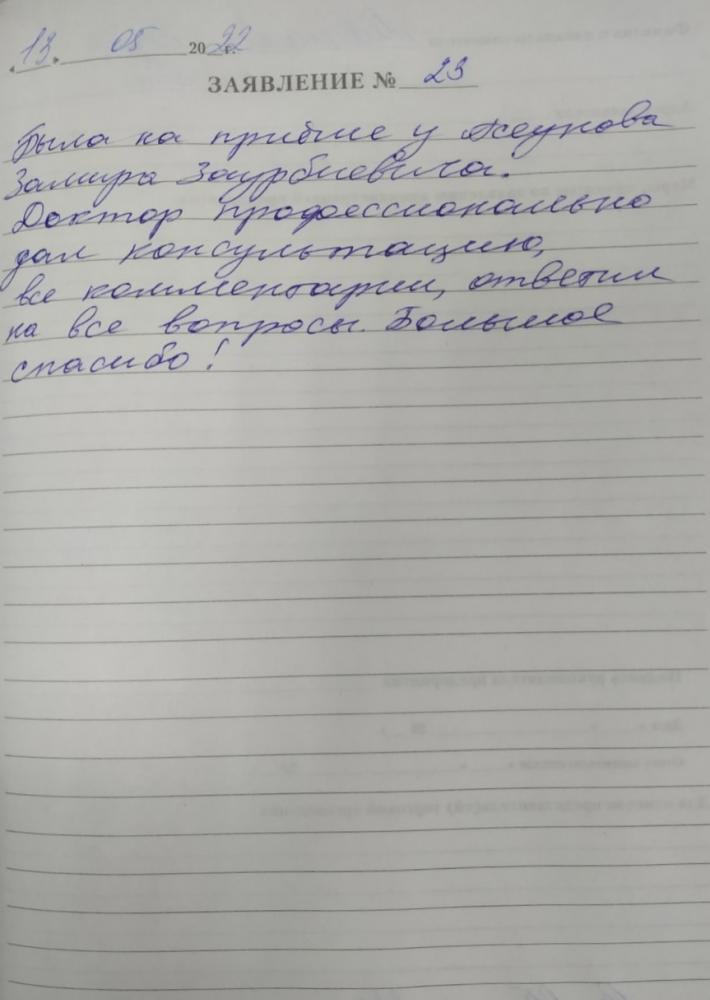 "13" 05 2022 г.
ЗАЯВЛЕНИЕ № 23
Была на приёме у Жеунова
Замира Заурбиевича.
Доктор профессионально
дал консультацию,
все комментарии, ответил
на все вопросы. Большое
спасибо!